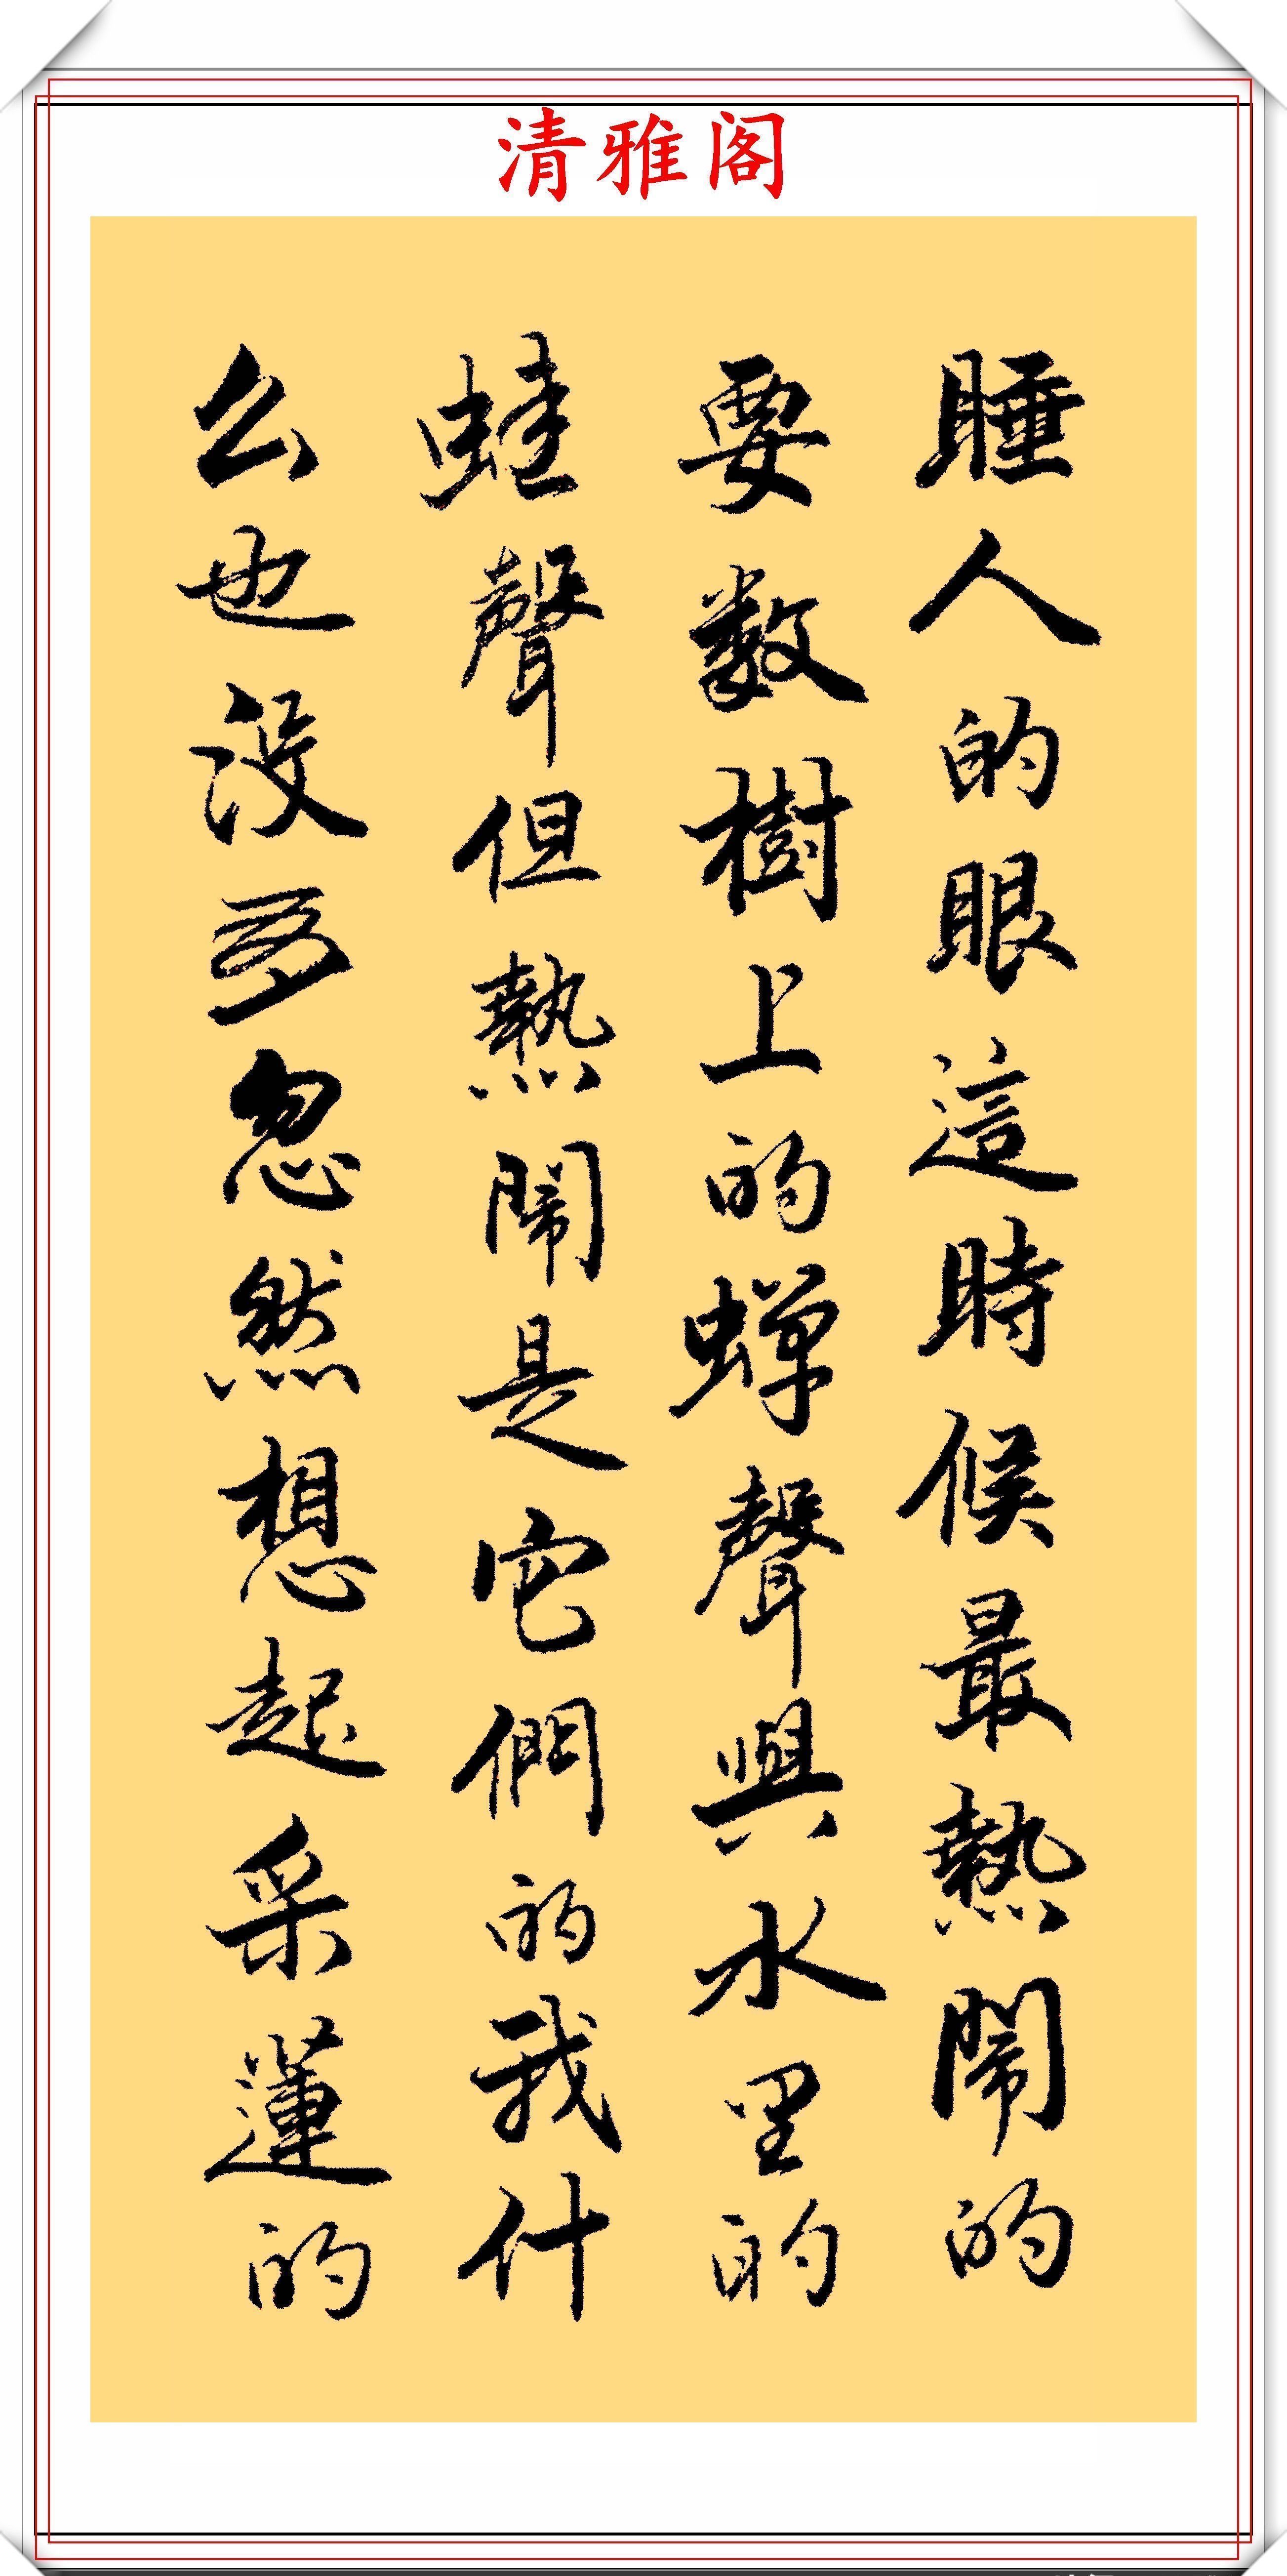 清雅阁
睡人的眼這時候最熱鬧的
要数樹上的蝉聲與水里的
蛙聲但熱鬧是它們的我什
么也没有忽然想起采蓮的